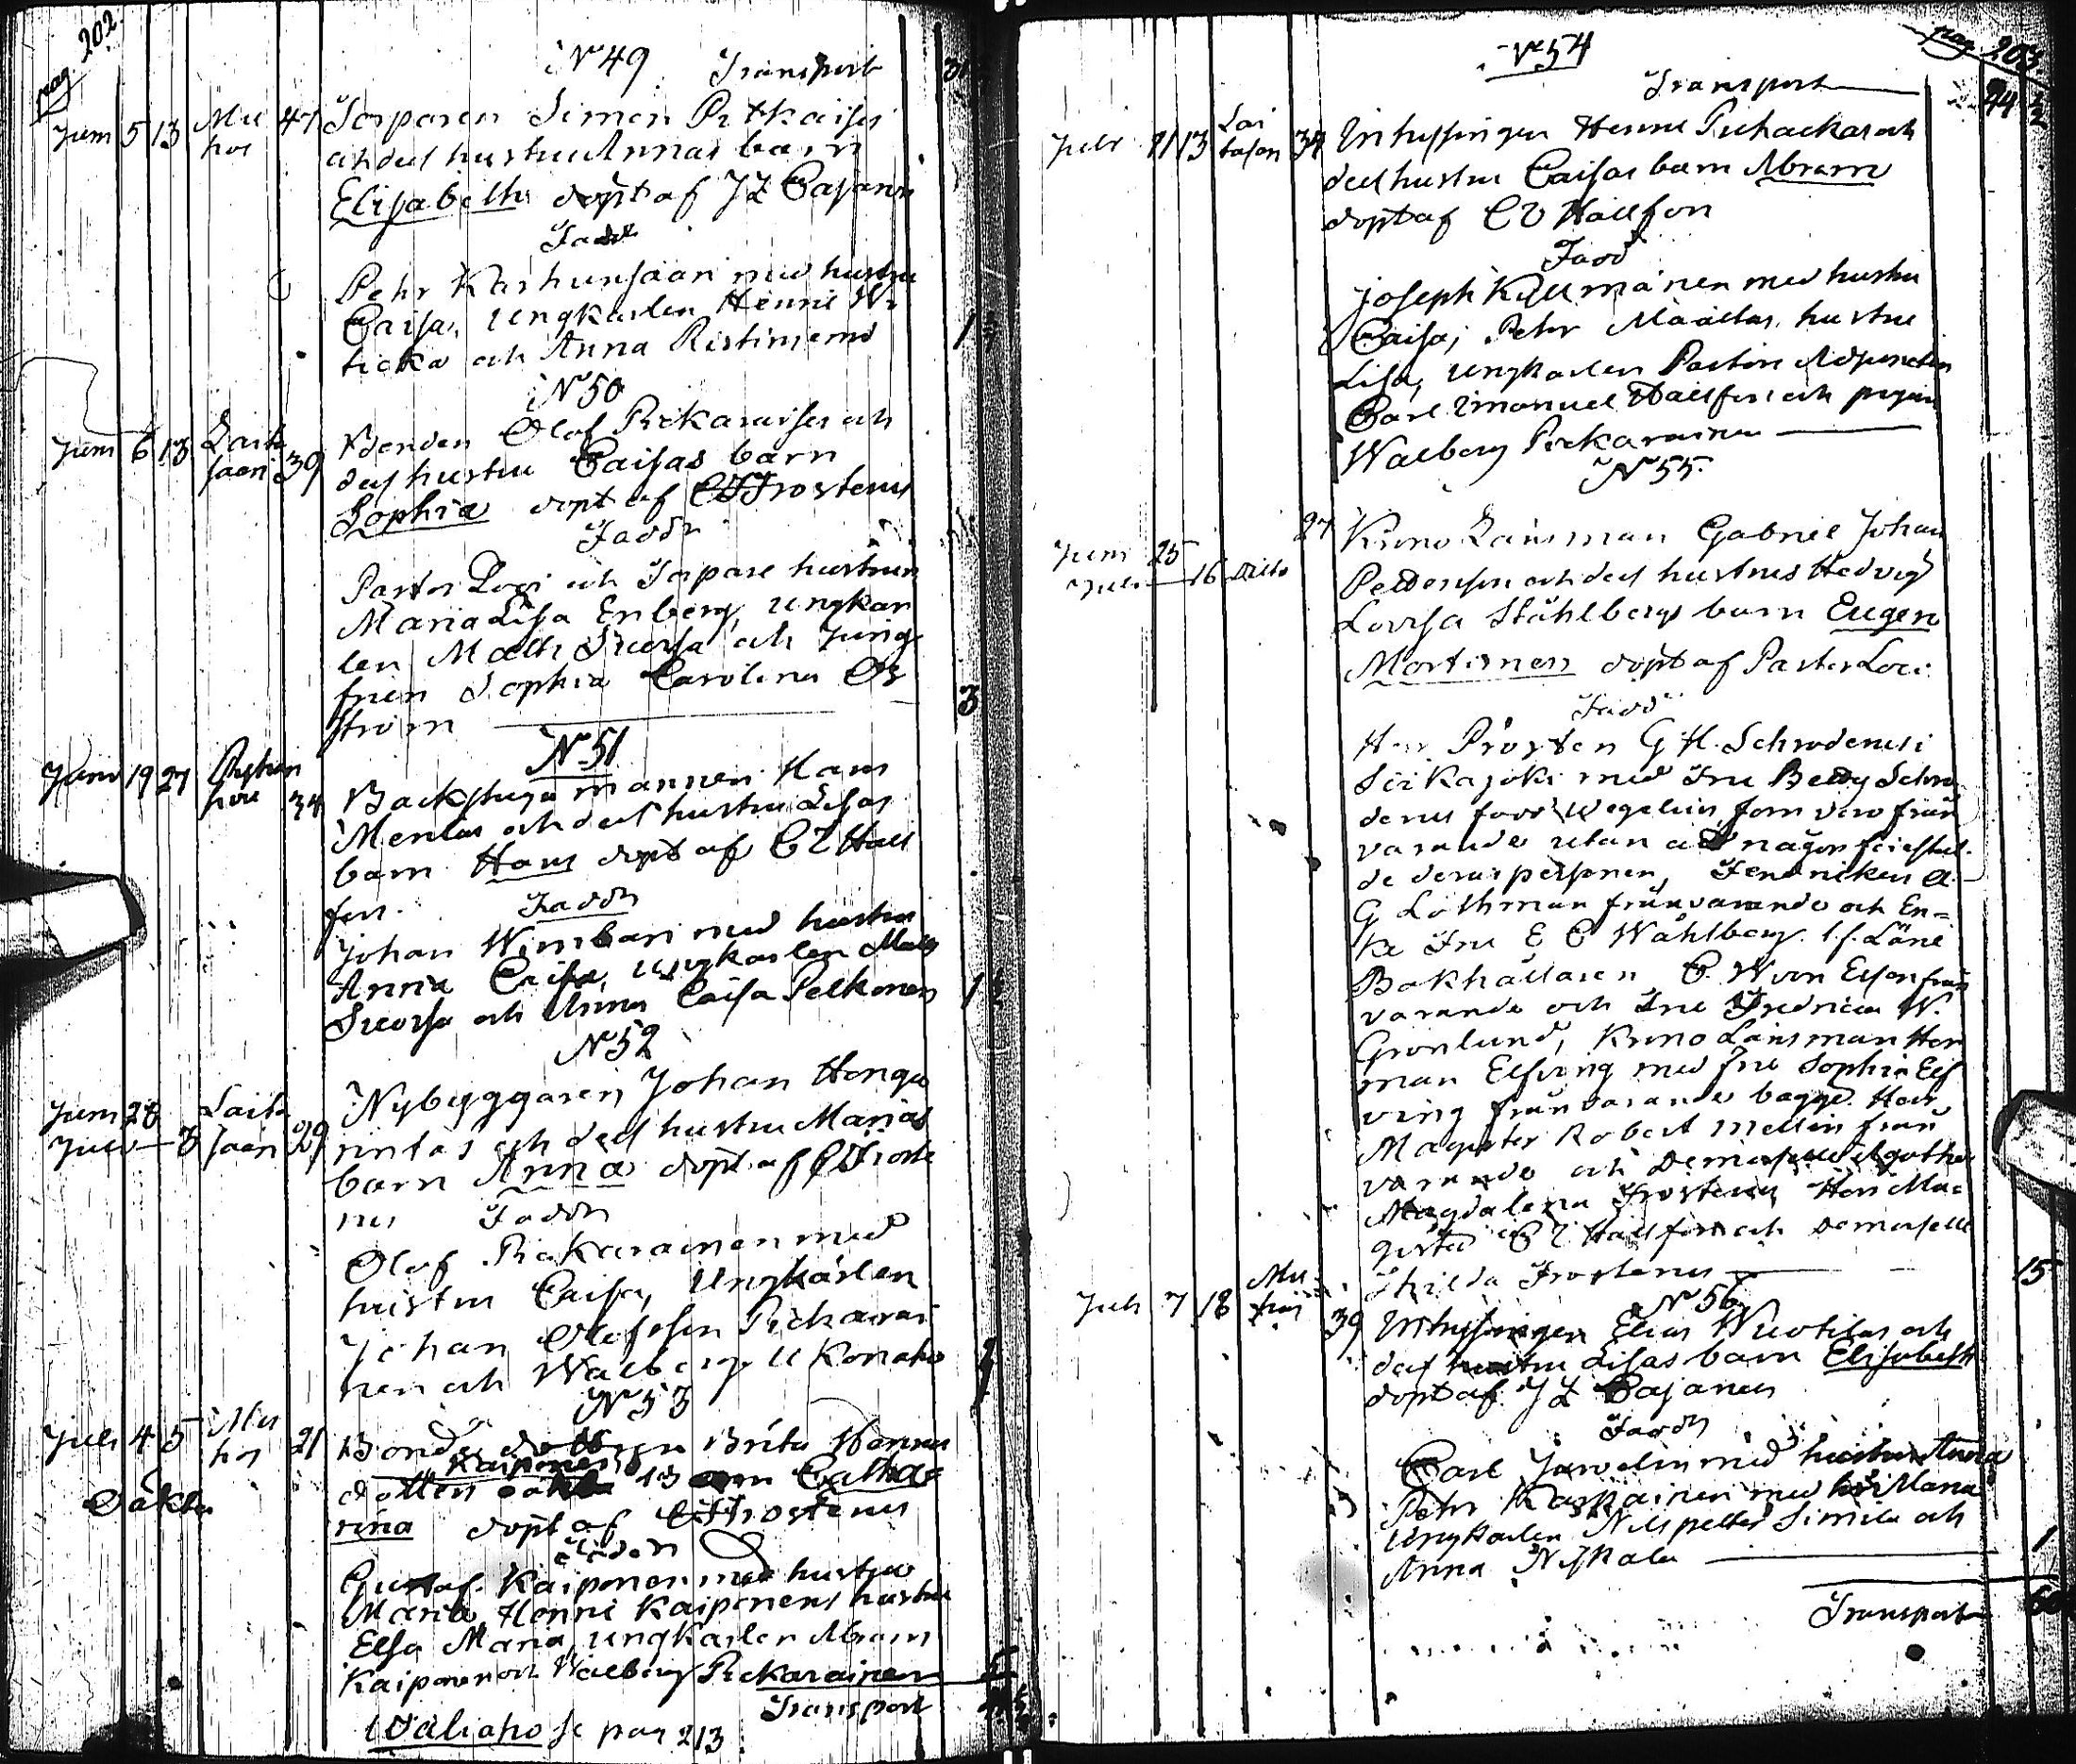 pag 202
N 49 Transport
Juni 5 13 Mu 47 Torparen Simon Pitkaises
hos och dess hustru Annas barn
Elisabeth döpt af J Z Cajanus
Fadd
Pehr Karhunsaari med hustru
Caisa, Ungkarlen Henric
ticka och Anna Ristiniemi
N 50
Juni 6 13 Laita 39 Bonden Olof Pickaraises och
saari dess hustru Caisas barn
Sophia döpt af C F Frosterus
Faddr
Pastor Loci och Torpare hustrun
Maria Lisa Enberg, Ungkar
len Math och Jung
frun Sophia Carolina Öst
ström 3
N 51
Juni 19 27 34 Backstugumannen Hans
Mentas och dess hustru Lisas
barn Hans döpt af C E Häll
fors.
Faddr
Johan Wimbari med hustru
Anna Caisa, Ungkarlen Matts
och Anna Caisa Pelkonen
N 52
Juni 28 Laita Nybyggaren Johan Honga
Juli 3 saari 29 rintas och dess hustru Marias
barn Anna döpt af C F Froste
rus Faddr
Olof Pickarainen med
hustru Caisa, Ungkarlen
Johan Olofsson Pickarai
nen och Walborg Ukonaho
N 53
Juli 4 5 Mu 21 Bonde dottren Brita Hannu
hos Kaiponen
dotters oäkta barn Catha
Oäkta
rina döpt af C F Frosterus
Fadder
Gustaf Kaiponen med hustru
Maria, Henric Kaiponens hustru
Elsa Maria, Ungkarlen Abram
Kaiponen och Walborg Pickarainen
Transport
Wäliaho se pag 213
N 54 pag 203
Transport 44 1/2
Juli 11 13 Lai 34 Inhysingen Henric Pickackas och
tasan dess hustru Caisas barn Abram
döpt af C E Hällfors
Fadd
Joseph Kyllmänen med hustru
Caisa, Pehr Määttas hustru
Lisa, Ungkarlen Pastors Adjuncten
Carl Emanuel Hällfors och pigan
Walborg Pickarainen
N 55
27 Krono Länsman Gabriel Johan
Juni 25
Juli 16 Ditto Peldersson och dess hustrus Hedvig
Lovisa Ståhlbergs barn Eugen
Mortimer döpt af Pastor Loci
Fadd
Herr Prosten G H. Schroderus i
Siikajoki med Fru Betty Schro
derus född Wegelius, som voro från
varande utan att någon föreställ
de deras personer, Fendriken A.
G Lothman frånvarande och En=
ke Fru E C Wåhlberg. l.f. Läns
Bokhållaren C. W von Essen från
varande och Fru Fredrica W.
Grönlund, Krono Länsman Her
man Elfving med Fru Sophia Elf
ving frånvarande bägge. Herr
Magister Robert Mellin från
varande och Demoiselle Agatha
Magdalena Frosterus Herr Ma=
gister C E Hällfors och Demoiselle
Thilda Frosterus 15
N 56
Juli 7 18 Mu 39 Inhysingen Elias Wuotilas och
hos dess hustru Lisas barn Elisabeth
döpt af J Z Cajanus
Faddr
Carl Jurvelin med hustru Anna
Pehr Karppainen med h: Maria
Ungkarlen Nils petter Simila och
Anna Niskala 1
Transport